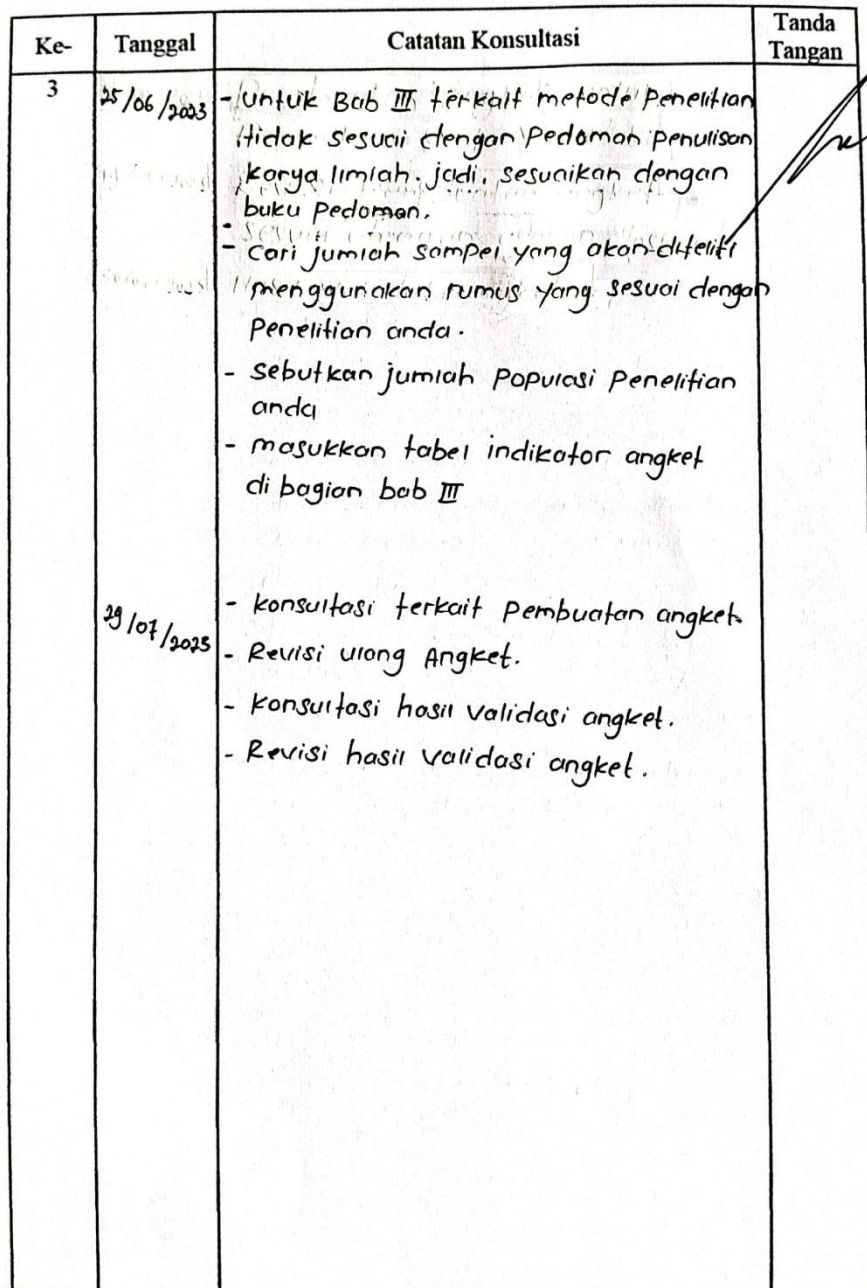 Ke- Tanggal Catatan Konsultasi Tanda Tangan
3 25/06/2023 - Untuk Bab III terkait metode Penelitian
tidak sesuai dengan Pedoman Penulisan
karya Ilmiah. jadi, sesuaikan dengan
buku Pedoman.
- cari jumlah sampel yang akan diteliti
menggunakan rumus yang sesuai dengan
Penelitian anda.
- sebutkan jumlah Populasi Penelitian
anda
- masukkan tabel indikator angket
di bagian bab III
29/07/2023 - konsultasi terkait Pembuatan angket.
- Revisi ulang Angket.
- Konsultasi hasil validasi angket.
- Revisi hasil validasi angket.